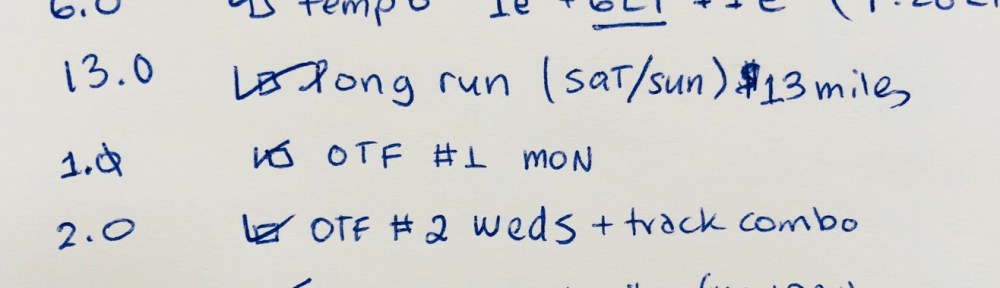 6.0 tempo 1e + 6LT + 1e
13.0 long run (sat/sun) 13 miles
1.0 OTF #1 mon
2.0 OTF #2 weds + track combo